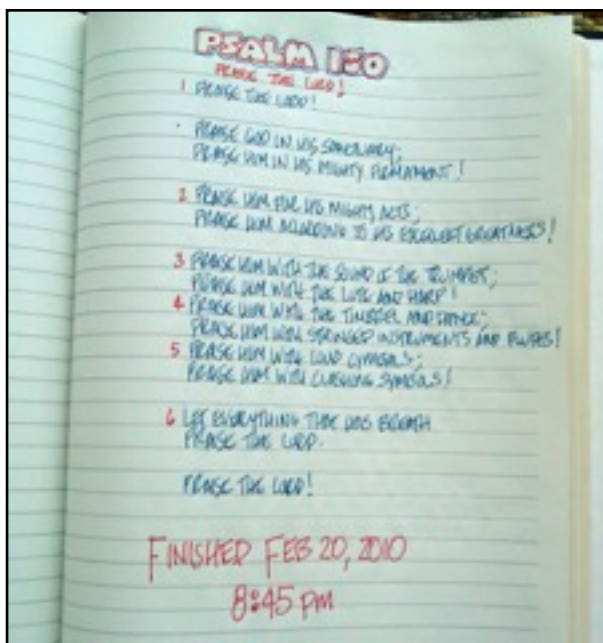 PSALM 150
PRAISE THE LORD!
1 PRAISE THE LORD!
· PRAISE GOD IN HIS SANCTUARY;
PRAISE HIM IN HIS MIGHTY FIRMAMENT!
2 PRAISE HIM FOR HIS MIGHTY ACTS;
PRAISE HIM ACCORDING TO HIS EXCELLENT GREATNESS!
3 PRAISE HIM WITH THE SOUND OF THE TRUMPET;
PRAISE HIM WITH THE LUTE AND HARP!
4 PRAISE HIM WITH THE TIMBREL AND DANCE;
PRAISE HIM WITH STRINGED INSTRUMENTS AND FLUTES!
5 PRAISE HIM WITH LOUD CYMBALS;
PRAISE HIM WITH CLASHING SYMBOLS!
6 LET EVERYTHING THAT HAS BREATH
PRAISE THE LORD.
PRAISE THE LORD!
FINISHED FEB 20, 2010
8:45 PM